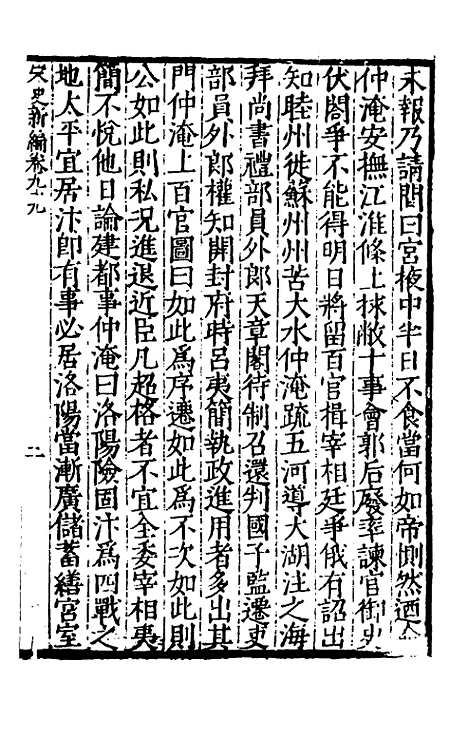 未報乃請間曰宮掖中半日不食當何如帝惻然廼命
仲淹安撫江淮條上捄敝十事會郭后廢率諫官御史
伏閤爭不能得明日將留百官揖宰相廷爭俄有詔出
知睦州徙蘇州州苦大水仲淹疏五河導大湖注之海
拜尚書禮部員外郎天章閣待制召還判國子監遷吏
部員外郎權知開封府時呂夷簡執政進用者多出其
門仲淹上百官圖曰如此爲序遷如此爲不次如此則
公如此則私況進退近臣凡超格者不宜全委宰相夷
簡不悅他日論建都事仲淹曰洛陽險固汴爲四戰之
地太平宜居汴卽有事必居洛陽當漸廣儲蓄繕宮室
宋史新編卷九十九
二